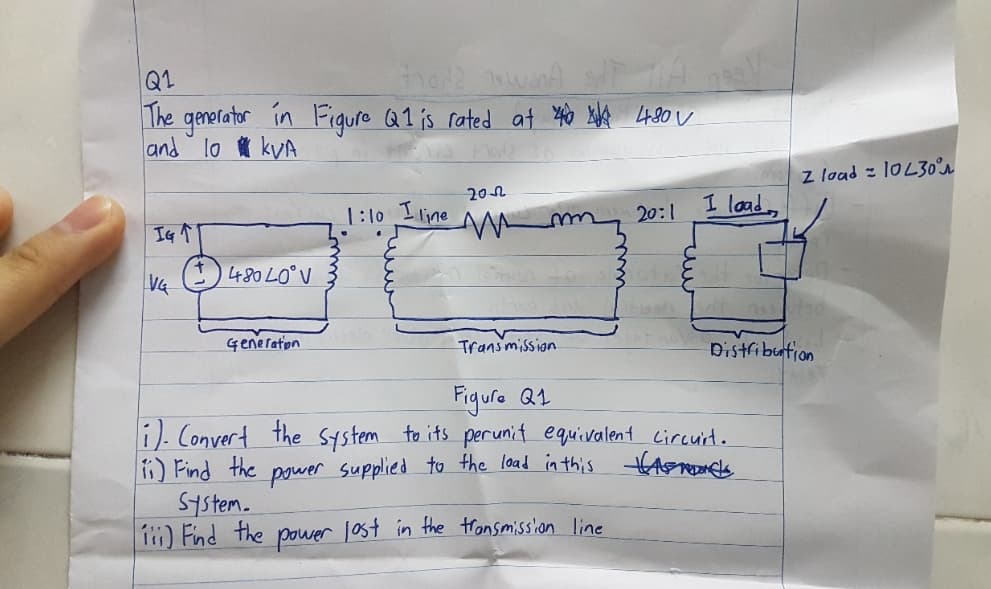 Q1
The generator in Figure Q1 is rated at 480 V
and 10 kVA
Z load = 10∠30°Ω
20Ω
1:10 I line 20:1 I load
IG ↑
VG + - 480∠0° V
Generation Transmission Distribution
Figure Q1
i). Convert the system to its perunit equivalent circuit.
ii) Find the power supplied to the load in this
system.
iii) Find the power lost in the transmission line